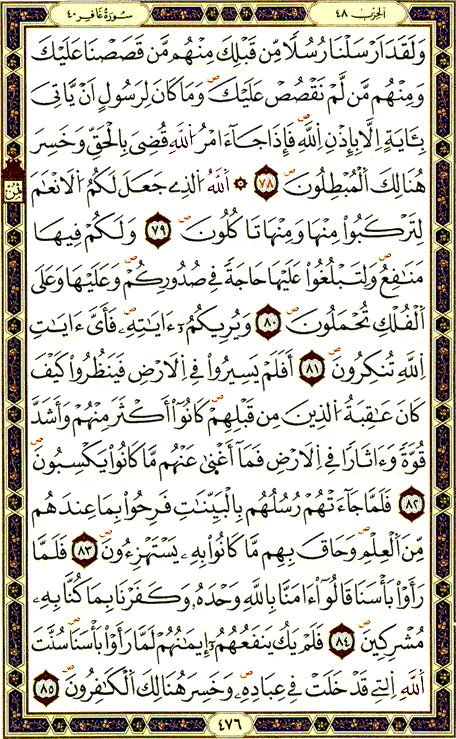 الحزب ٤٨
سورة غافر ٤٠
وَلَقَدَ اَرْسَلْنَا رُسُلًا مِّن قَبْلِكَ مِنْهُم مَّن قَصَصْنَا عَلَيْكَ
وَمِنْهُم مَّن لَّمْ نَقْصُصْ عَلَيْكَ وَمَا كَانَ لِرَسُولٍ اَنْ يَّاتِيَ
بِـَٔايَةٍ اِلَّا بِإِذْنِ اِ۬للَّهِ فَإِذَا جَآءَ امْرُ اُ۬للَّهِ قُضِيَ بِالْحَقِّ وَخَسِرَ
هُنَالِكَ اَ۬لْمُبْطِلُونَ ٧٨ ۞ اَ۬للَّهُ اُ۬لذِے جَعَلَ لَكُمُ اُ۬لَانْعَٰمَ
لِتَرْكَبُواْ مِنْهَا وَمِنْهَا تَاكُلُونَ ٧٩ وَلَكُمْ فِيهَا
مَنَٰفِعُ وَلِتَبْلُغُواْ عَلَيْهَا حَاجَةً فِے صُدُورِكُمْ وَعَلَيْهَا وَعَلَى
اَ۬لْفُلْكِ تُحْمَلُونَ ٨٠ وَيُرِيكُمُۥٓ ءَايَٰتِهِۦ فَأَيَّ ءَايَٰتِ
اِ۬للَّهِ تُنكِرُونَ ٨١ أَفَلَمْ يَسِيرُواْ فِے اِ۬لَارْضِ فَيَنظُرُواْ كَيْفَ
كَانَ عَٰقِبَةُ اُ۬لذِينَ مِن قَبْلِهِمْ كَانُوٓاْ أَكْثَرَ مِنْهُمْ وَأَشَدَّ
قُوَّةً وَءَاثَارًا فِے اِ۬لَارْضِ فَمَآ أَغْنَىٰ عَنْهُم مَّا كَانُواْ يَكْسِبُونَ
٨٢ فَلَمَّا جَآءَتْهُمْ رُسُلُهُم بِالْبَيِّنَٰتِ فَرِحُواْ بِمَا عِندَهُم
مِّنَ اَ۬لْعِلْمِ وَحَاقَ بِهِم مَّا كَانُواْ بِهِۦ يَسْتَهْزِءُونَ ٨٣ فَلَمَّا
رَأَوْاْ بَأْسَنَا قَالُوٓاْ ءَامَنَّا بِاللَّهِ وَحْدَهُۥ وَكَفَرْنَا بِمَا كُنَّا بِهِۦ
مُشْرِكِينَ ٨٤ فَلَمْ يَكُ يَنفَعُهُمُۥٓ إِيمَٰنُهُمْ لَمَّا رَأَوْاْ بَأْسَنَا سُنَّتَ
اَ۬للَّهِ اِ۬لتِے قَدْ خَلَتْ فِے عِبَادِهِۦ وَخَسِرَ هُنَالِكَ اَ۬لْكَٰفِرُونَ ٨٥
٤٧٦